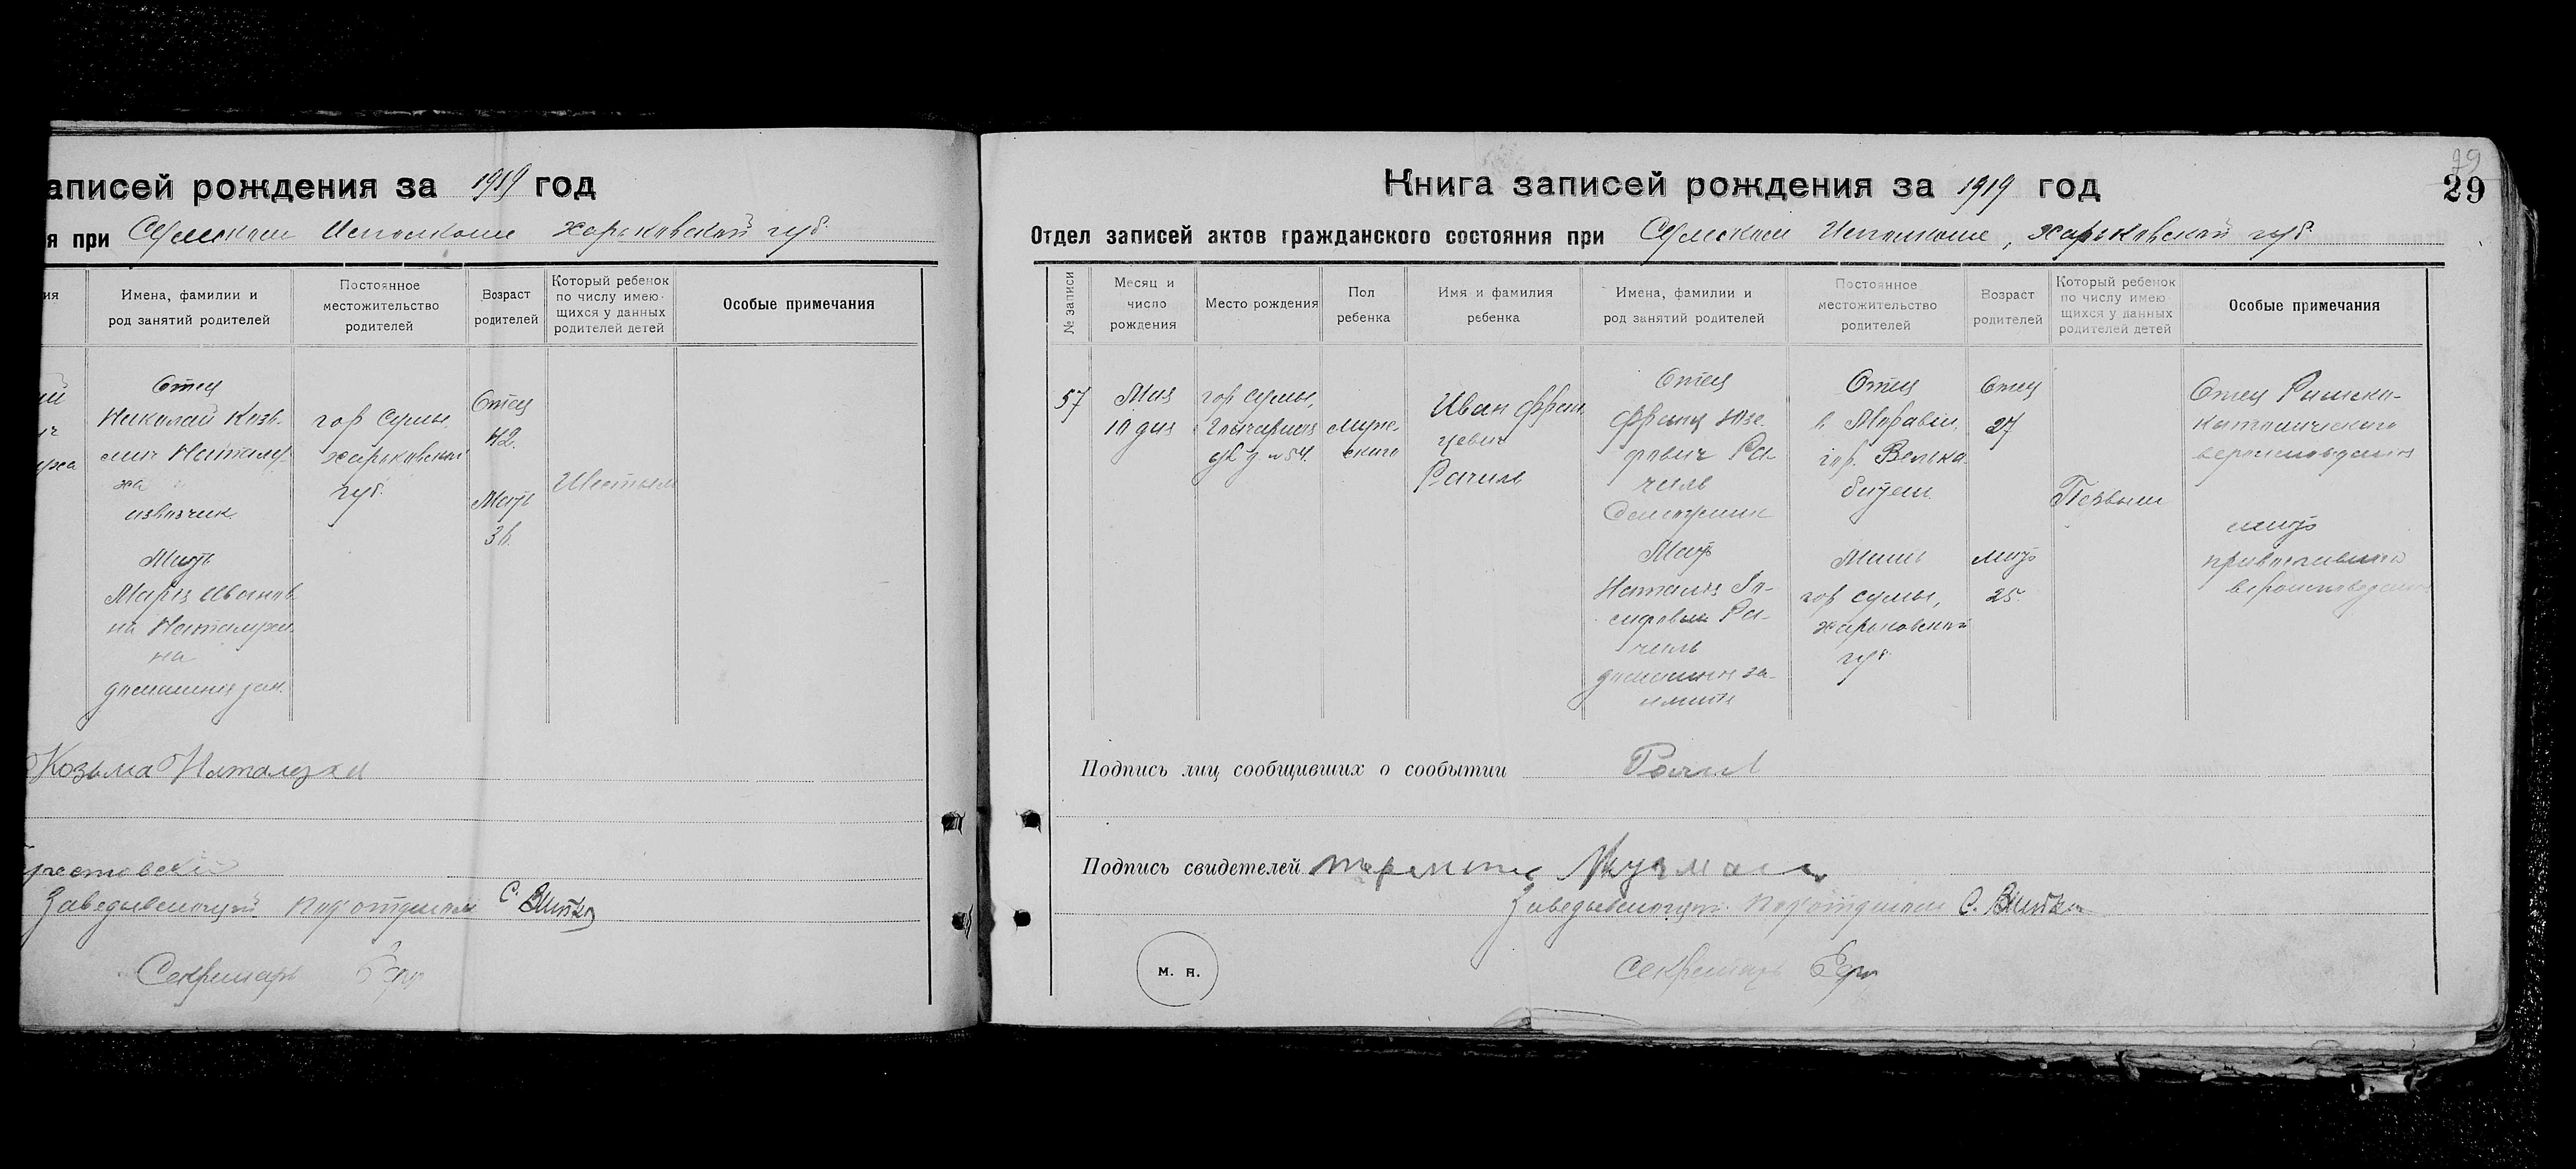 аписей рождения за 1919 год
я при Сумском Исполкоме Харьковской губ.
ия
Имена, фамилии и
род занятий родителей
Постоянное
местожительство
родителей
Возраст
родителей
Который ребенок
по числу имею-
щихся у данных
родителей детей
Особые примечания
Отец
Николай Козь-
мич Наталу-
ха
извозчик
Мать
Мария Иванов-
на
домашн зан.
гор Сумы,
Харьковской
губ.
Отец
42.
Мать
36.
Шестым
Козьма Наталуха
Заведывающий Подотделом С.
Секретарь
29
29
Книга записей рождения за 1919 год
Отдел записей актов гражданского состояния при Сумском Исполкоме, Харьковской губ.
№ записи
Месяц и
число
рождения
Место рождения
Пол
ребенка
Имя и фамилия
ребенка
Имена, фамилии и
род занятий родителей
Постоянное
местожительство
родителей
Возраст
родителей
Который ребенок
по числу имею
щихся у данных
родителей детей
Особые примечания
57
Мая
10 дня
гор Сумы,
Гончарная
ул. д. № 54.
муже-
ского
Иван Фран
цевич
Рачиль
Отец
Франц Юзе-
фович Ра-
чиль
Сапожник
Мать
Наталия Ио-
сифовна Ра-
чиль
домашние за-
нятия
Отец
в Моравии,
гор. Велька
битеш.
Мать
гор Сумы,
Харьковской
губ.
Отец
27
мать
25.
Первым
Отец Римско-
католического
вероисповедания
мать
православного
вероисповедания
Подпись лиц сообщивших о сообытии
Подпись свидетелей
Заведывающий Подотделом С.
м. п.
Секретарь